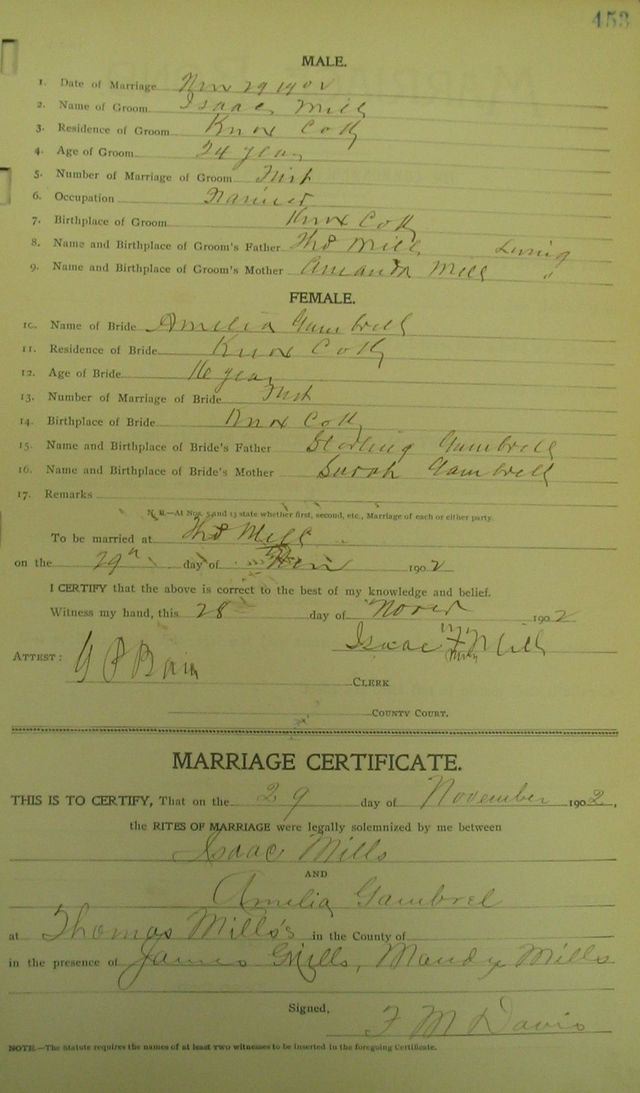 453
MALE.
1. Date of Marriage Nov 29 1902
2. Name of Groom Isaac Mills
3. Residence of Groom Knox Co Ky
4. Age of Groom 24 years
5. Number of Marriage of Groom First
6. Occupation Farmer
7. Birthplace of Groom Knox Co Ky
8. Name and Birthplace of Groom's Father Thos Mills Living
9. Name and Birthplace of Groom's Mother Amanda Mills "
FEMALE.
10. Name of Bride Amelia Gambrell
11. Residence of Bride Knox Co Ky
12. Age of Bride 16 years
13. Number of Marriage of Bride First
14. Birthplace of Bride Knox Co Ky
15. Name and Birthplace of Bride's Father Sterling Gambrell
16. Name and Birthplace of Bride's Mother Sarah Gambrell
17. Remarks
N. B.—At Nos. 5 and 13 state whether first, second, etc., Marriage of each or either party.
To be married at Thos Mills
on the 29th day of Nov 1902
I CERTIFY that the above is correct to the best of my knowledge and belief.
Witness my hand, this 28 day of 1902
Isaac Mills
ATTEST:
CLERK
COUNTY COURT.
MARRIAGE CERTIFICATE.
THIS IS TO CERTIFY, That on the 29 day of November 1902,
the RITES OF MARRIAGE were legally solemnized by me between
Isaac Mills
AND
Amelia Gambrel
at Thomas Mills's in the County of
in the presence of James Mills, Mandy Mills
Signed,
F M Davis
NOTE.—The Statute requires the names of at least two witnesses to be inserted in the foregoing Certificate.